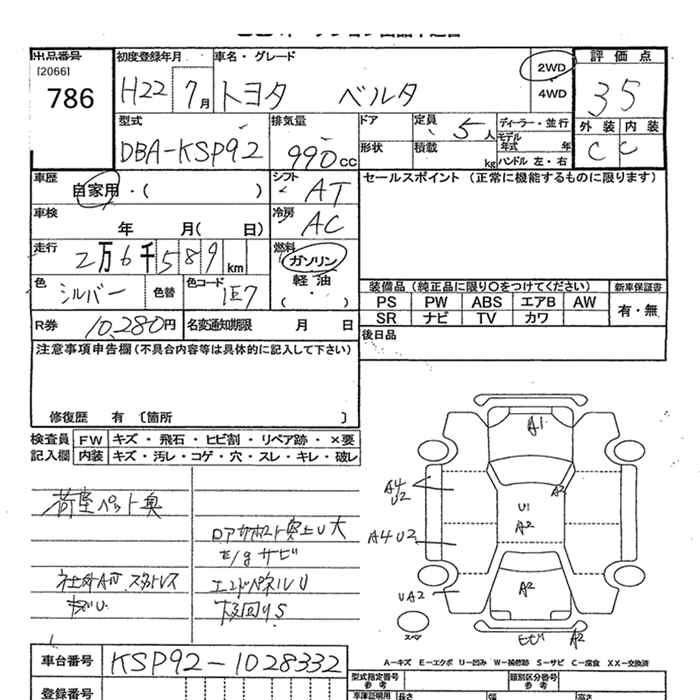 出品番号 初度登録年月 車名・グレード 2WD 評価点
[2066]
786 H22 7月 トヨタ ベルタ 4WD 35
型式 排気量 ドア 定員 5人 ディーラー・並行 外装 内装
DBA-KSP92 990cc 形状 積載 kg モデル年式 年 C C
ハンドル 左・右
車歴 自家用・( ) シフト AT セールスポイント(正常に機能するものに限ります)
車検 年 月( 日) 冷房 AC
走行 2万6千589km 燃料 ガソリン
軽油
( ・ )
色 シルバー 色替 色コード 1E7 装備品(純正品に限り○をつけてください) 新車保証書
PS PW ABS エアB AW 有・無
R券 10,280円 名変通知期限 月 日 SR ナビ TV カワ
注意事項申告欄(不具合内容等は具体的に記入して下さい) 後日品
修復歴 有 〔箇所 〕
検査員 FW キズ・飛石・ヒビ割・リペア跡・×要
記入欄 内装 キズ・汚レ・コゲ・穴・スレ・キレ・破レ
荷室ペット臭
エンドパネルU
A1
A4
U2
A2
U1
A2
A4 U2
UA2
A2
A2
スペア
車台番号 KSP92-1028332
A-キズ E-エクボ U-凹み W-補修跡 S-サビ C-腐食 XX-交換済
型式指定番号 類別区分番号
参考 参考
登録番号 車庫証明用 長さ 幅 高さ